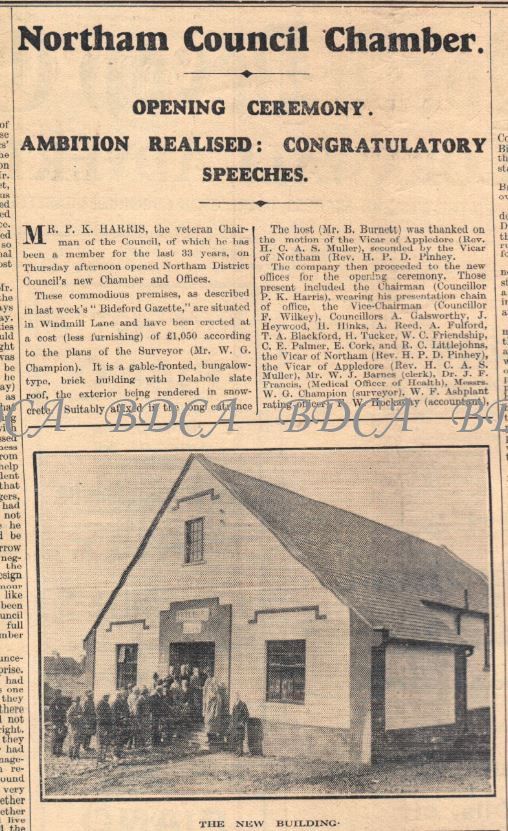 Northam Council Chamber.
OPENING CEREMONY.
AMBITION REALISED: CONGRATULATORY
SPEECHES.
MR. P. K. HARRIS, the veteran Chair-
man of the Council, of which he has
been a member for the last 33 years, on
Thursday afternoon opened Northam District
Council's new Chamber and Offices.
These commodious premises, as described
in last week's "Bideford Gazette," are situated
in Windmill Lane and have been erected at
a cost (less furnishing) of £1,050 according
to the plans of the Surveyor (Mr. W. G.
Champion). It is a gable-fronted, bungalow-
type, brick building with Delabole slate
roof, the exterior being rendered in snow-
crete. Suitably affixed in the long entrance
The host (Mr. B. Burnett) was thanked on
the motion of the Vicar of Appledore (Rev.
H. C. A. S. Muller), seconded by the Vicar
of Northam (Rev. H. P. D. Pinhey.
The company then proceeded to the new
offices for the opening ceremony. Those
present included the Chairman (Councillor
P. K. Harris), wearing his presentation chain
of office, the Vice-Chairman (Councillor
F. Wilkey), Councillors A. Galsworthy, J.
Heywood, H. Hinks, A. Reed, A. Fulford,
T. A. Blackford, H. Tucker, W. C. Friendship,
C. E. Palmer, E. Cork, and R. C. Littlejohns,
the Vicar of Northam (Rev. H. P. D. Pinhey),
the Vicar of Appledore (Rev. H. C. A. S.
Muller), Mr. W. J. Barnes (clerk), Dr. J. F.
Francis, (Medical Officer of Health), Messrs.
W. G. Champion (surveyor), W. F. Ashplant
rating officer), Hockaday (accountant),
BDCA BDCA
THE NEW BUILDING.